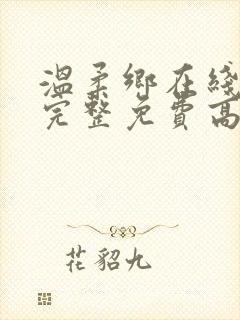 温柔乡在线
完整免費高
花貂九